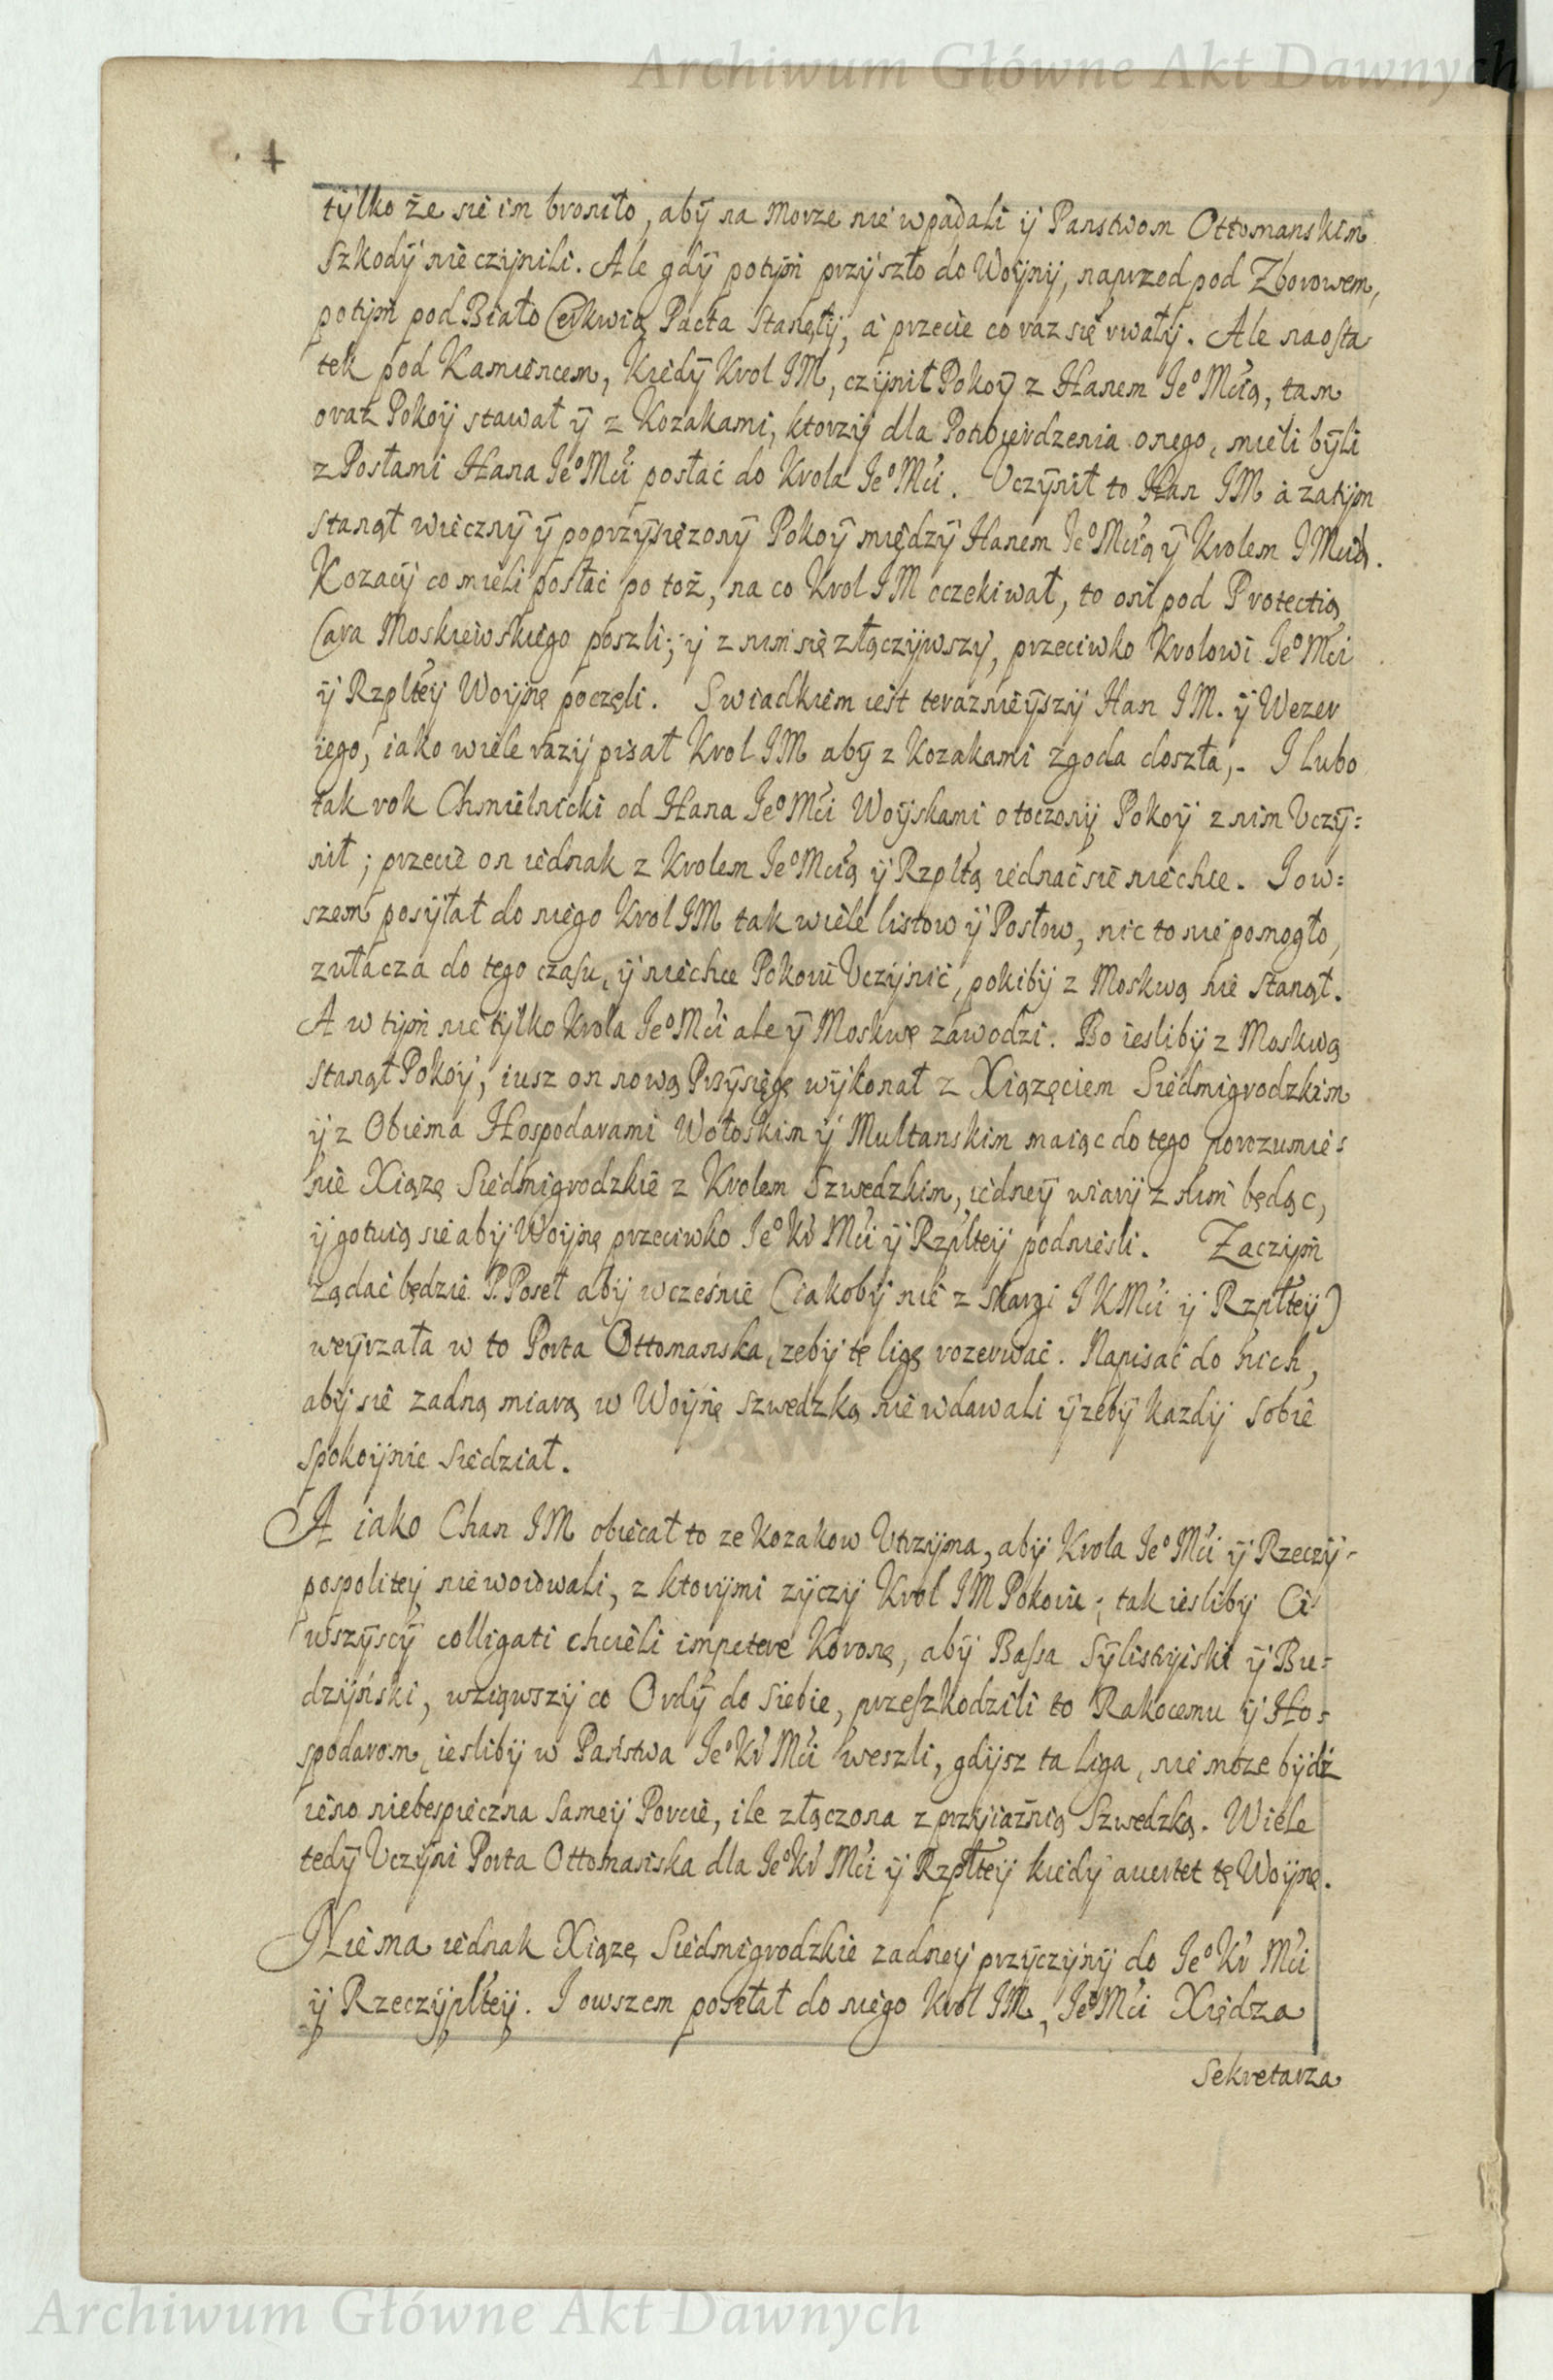 Archiwum Główne Akt Dawnych
4
tylko że się im broniło, aby na Morze nie wpadali ÿ Panstwom Ottomanskim
Szkody nie czynili. Ale gdy potym przyszło do Woyny, naprzod pod Zborowem,
potym pod Biało Cerkwią Pacta Stanęły, a przecie co raz się rwały. Ale na osta
tek pod Kamiencem, kiedy Krol IM, czynił Pokoy z Hanem Je° Mcią, tam
oraz Pokoy stawał y z Kozakami, ktorzy dla Potwierdzenia onego, mieli byli
z Posłami Hana Je° Mci posłać do Krola Je° Mci. Vczynił to Han IM a zatym
stanął wieczny y poprzysięzony Pokoy między Hanem Je° Mcią y Krolem I Mcią.
Kozacy co mieli posłać po toż, na co Krol IM oczekiwał, to oni pod Protectią
Cara Moskiewskiego poszli; y z nim się złączywszy, przeciwko Krolowi Je° Mci
y Rzpltey Woynę poczęli. Swiadkiem iest teraznieyszy Han IM. y Wezer
iego, iako wiele razy pisał Krol IM aby z Kozakami zgoda doszła,. I lubo
tak rok Chmielnicki od Hana Je° Mci Woyskami otoczony Pokoy z nim Vczy=
nił; przecie on iednak z Krolem Je° Mcią y Rzpltą iednać się niechce. I ow=
szem posyłał do niego Krol IM tak wiele listow y Posłow, nic to nie pomogło,
zwłacza do tego czasu, y niechce Pokoiu Vczynić, pokiby z Moskwą nie stanął.
A w tym nie tylko Krola Je° Mci ale y Moskwę zawodzi. Bo iesliby z Moskwą
stanął Pokoy, iusz on nową Przysięgę wykonał z Xiązęciem Siedmigrodzkim
y z Obiema Hospodarami Wołoskim y Multanskim maiąc do tego porozumie=
nie Xiązę Siedmigrodzkie z Krolem Szwedzkim, iedney wiary z nim będąc,
y gotuią się aby Woynę przeciwko Je° Kr Mci y Rzpltey podniesli. Zaczym
ządać będzie P. Poseł aby wcześnie (iakoby nie z skargi I K Mci y Rzpltey)
weyrzała w to Porta Ottomanska, zeby tę ligę rozerwać. Napisać do nich,
aby się zadną miarą w Woynę Szwedzką nie wdawali y zeby kazdy sobie
spokoynie siedział.
A iako Chan IM obiecał to ze Kozakow Vtrzyma, aby Krola Je° Mci y Rzeczy-
pospolitey nie woiowali, z ktorymi zyczy Krol IM Pokoiu; tak iesliby Ci
wszyscy colligati chcieli impetere Koronę, aby Bassa Sylistryiski y Bu=
dzyński, wziąwszy co Ordy do siebie, przeszkodzili to Rakocemu y Ho=
spodarom, iesliby w Państwa Je° Kr Mci weszli, gdysz ta Liga, nie moze bydź
ieno niebespieczna samey Porcie, ile złączona z przyiaźnią Szwedzką. Wiele
tedy Vczyni Porta Ottomanska dla Je° Kr Mci y Rzpltey kiedy auertet tę Woynę.
Nie ma iednak Xiązę Siedmigrodzkie zadney przyczyny do Je° Kr Mci
y Rzeczypltey. I owszem posełał do niego Krol IM, Je° Mci Xiędza
Sekretarza
Archiwum Główne Akt Dawnych